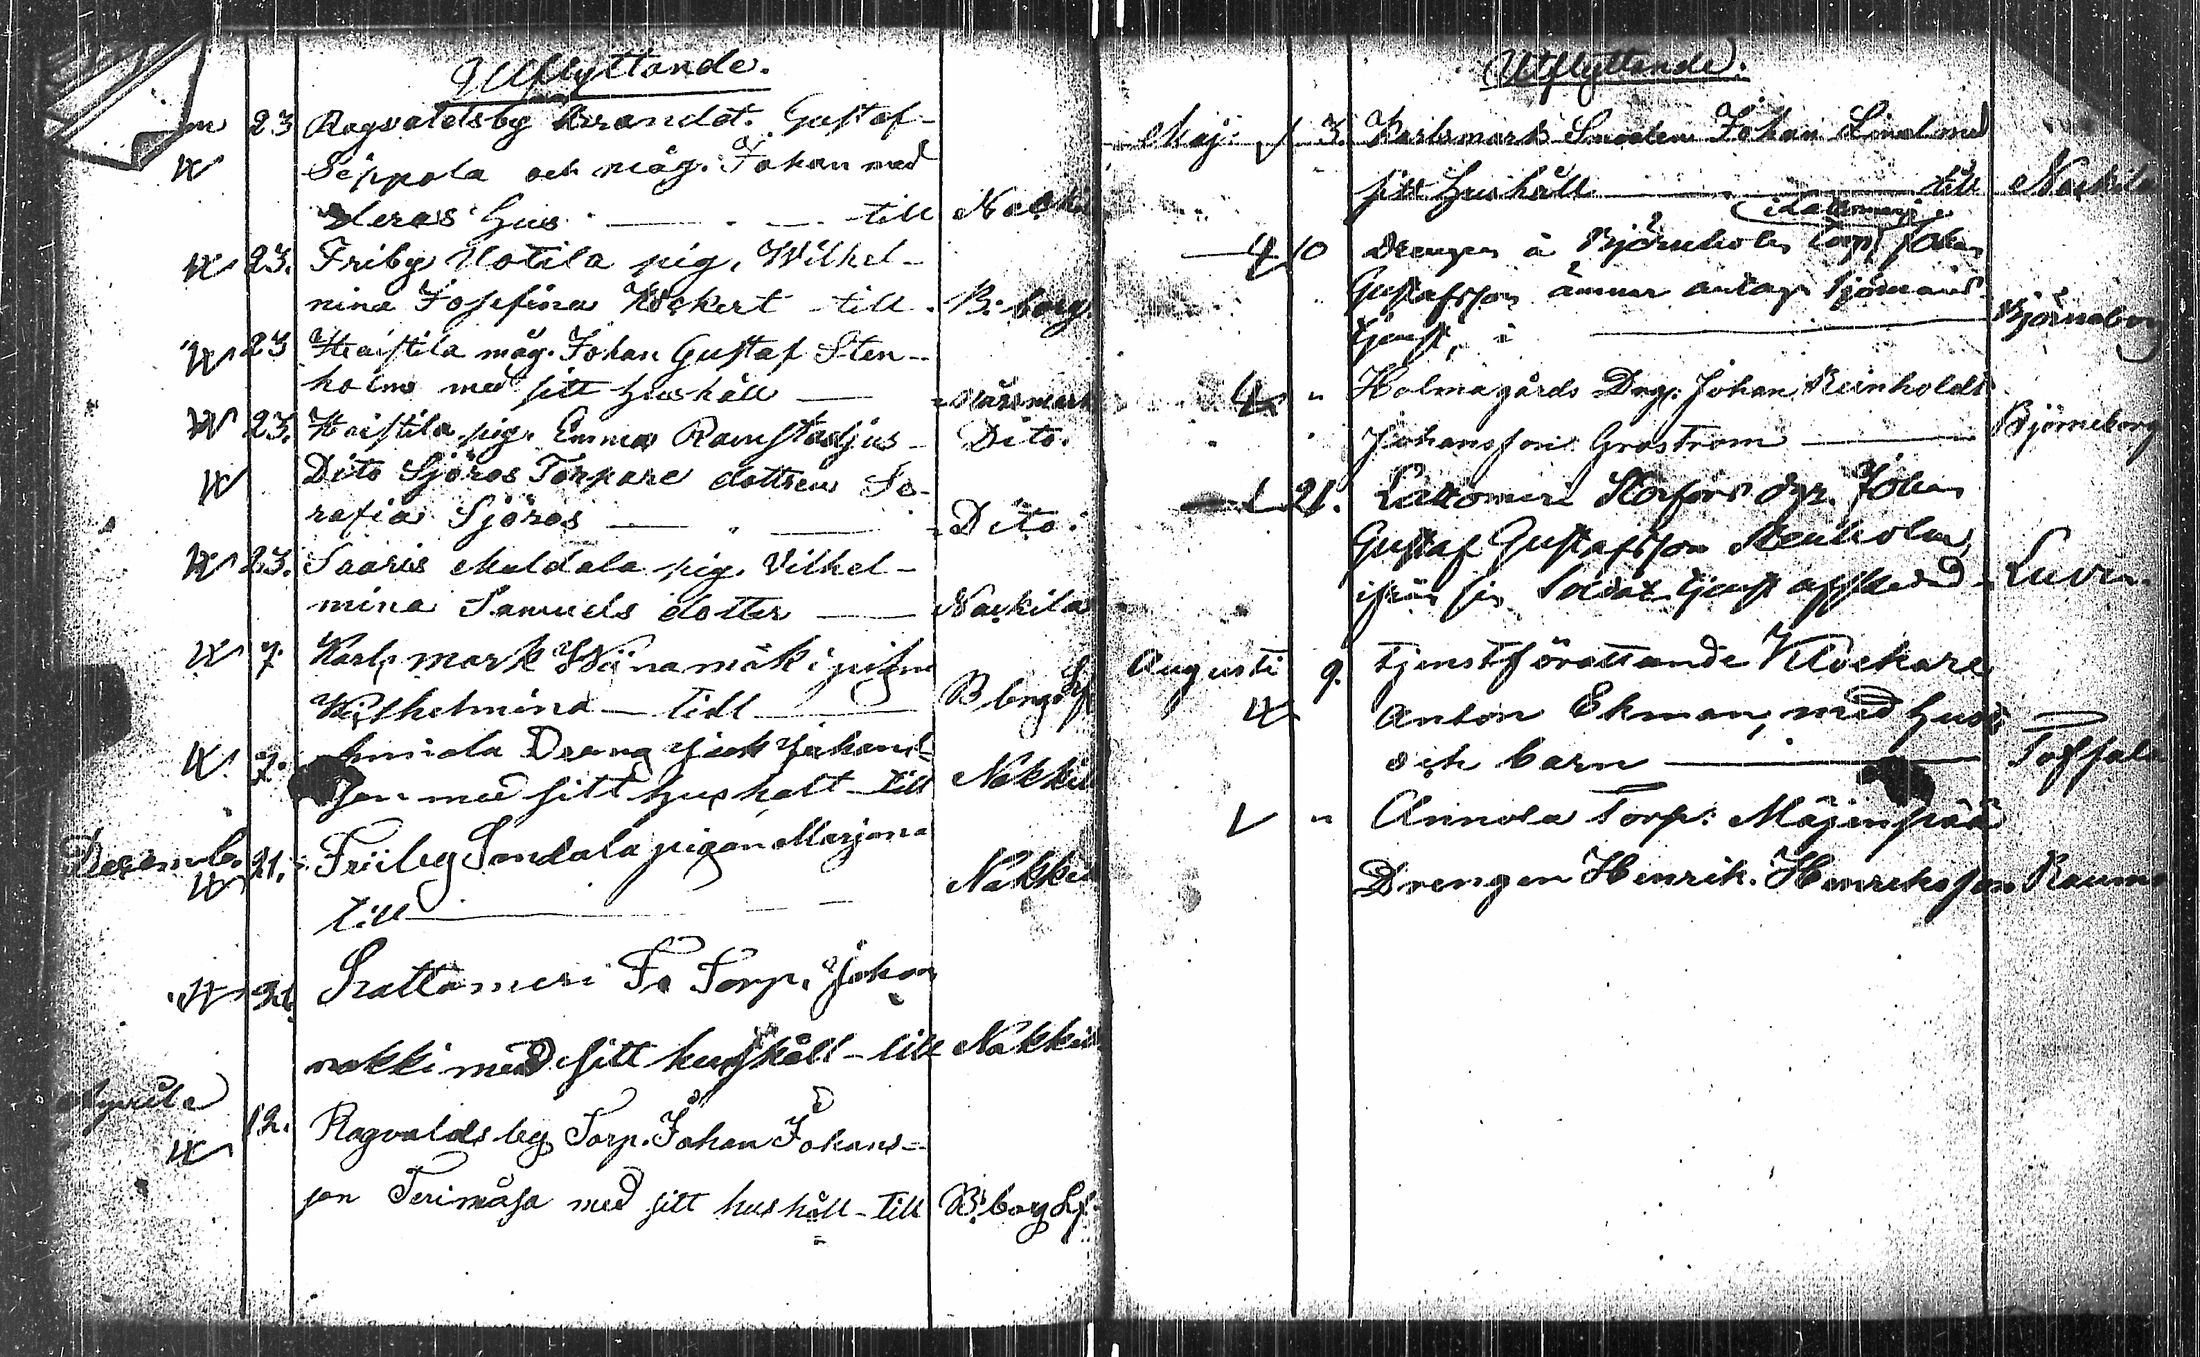 Utflyttande.
23 Ragvaldsby Brandt. Gustaf
Seppola och måg. Johan med
deras Hus — till Nakki
23. Friby Uotila pig. Wilhel-
mina Josefina Höckert till B:borg
23 Haistila måg. Johan Gustaf Sten-
holm med sitt hushåll — Norrmark
23. Haistila pig. Emma Ramstadjus — Dito.
Dito Sjöros Torpare dottren Se-
rafia Sjöros — Dito.
23. Saaris Muldala pig. Vilhel-
mina Samuels dotter — Nackila
7. Karlsmark Wiinamäki pigan
Wilhelmina — till — B borgs Lf
7. Anniola Dreng Isak Johans-
son med sitt hushålt — till Nakkil
December 21. Friiby Sandala pigan Marjana
till — Nakkil
21. Lattomeri Torp. Johan
nokki med sitt hushåll — till Nakkil
Aprill 12. Ragvaldsby Torp. Johan Johans-
son Terimåsa med sitt hushåll — till B:borg Lf.
Utflyttande.
Maj 3. Karlsmark Smeden Johan Lind med
sitt hushåll — till Nackila
Lattomeri
10 Drengen å Björnholm Torp Johan
Gustafsson ämnar antaga sjömans
tjenst, i — Björneborg
" Holmagårds Drg. Johan Reinholdt
Johansson Groström — Björneborg
21. Lattomeri Storfors dgr. Johan
Gustaf Gustafsson Stenholm,
ifrån sin Soldat tjenst afskedad — Luvia.
Augusti 9. tjenstförättande Klockare
Anton Ekman, med hustr
och barn — Toffsala
" Annola Torp: Mäjenpää
Drengen Henrik. Henriksson Raumo